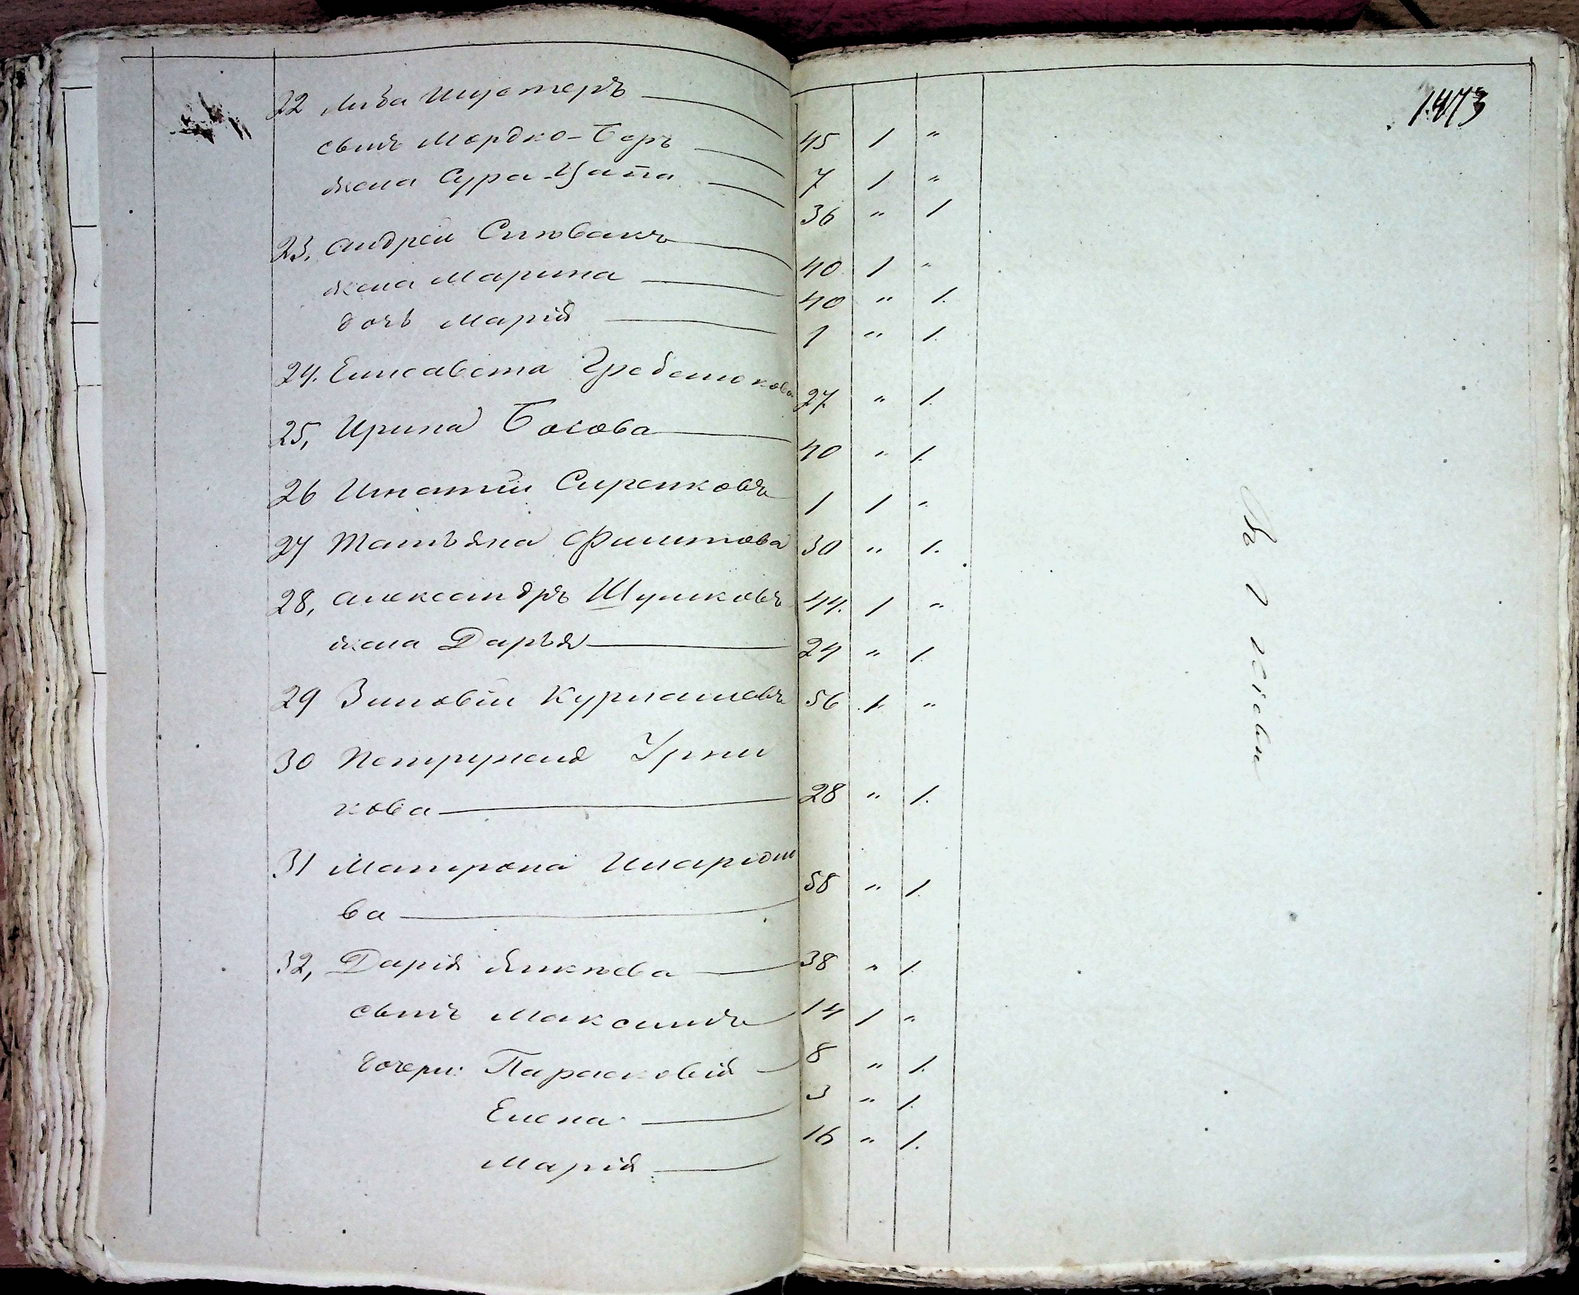 1473
22 Либа Шустеръ 45 1 "
сынъ Мордко-Беръ 7 1 "
жена Сура-Цапа 36 " 1
23, Андрей Спивакъ 40 1 "
жена Марина 40 " 1.
дочь Марія 1 " 1.
24. Елисавета Гребенюкова 27 " 1.
25, Ирина Босова 40 " 1.
26 Игнатій Сиренковъ 1 1 "
27 Татьяна Филипова 30 " 1.
28, Александръ Шуликовъ 44. 1 "
жена Дарья 24 " 1.
29 Зиновій Курпашовъ 56 1. "
30 Петрунеля
кова 28 " 1.
31 Матрона Иларіон
ва 58 " 1.
32, Дарія 38 " 1.
сынъ Максимъ 14 1 "
дочери: Парасковія 8 " 1.
Елена 3 " 1.
Марія 16 " 1.